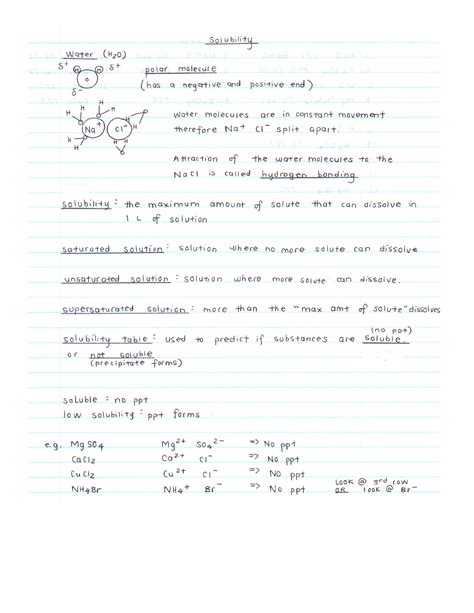 Solubility
Water (H₂O)
δ⁺ H H δ⁺
O
δ⁻
polar molecule
(has a negative and positive end)
H H H H H
Na⁺ Cl⁻
H H
water molecules are in constant movement
therefore Na⁺ Cl⁻ split apart.
Attraction of the water molecules to the
NaCl is called hydrogen bonding.
solubility: the maximum amount of solute that can dissolve in
1 L of solution
saturated solution: solution where no more solute can dissolve
unsaturated solution: solution where more solute can dissolve.
supersaturated solution: more than the "max amt of solute" dissolves
(no ppt)
solubility table: used to predict if substances are soluble.
or not soluble
(precipitate forms)
soluble: no ppt
low solubility: ppt forms
e.g. MgSO₄ Mg²⁺ SO₄²⁻ => No ppt
CaCl₂ Ca²⁺ Cl⁻ => No ppt
CuCl₂ Cu²⁺ Cl⁻ => No ppt
NH₄Br NH₄⁺ Br⁻ => No ppt
LOOK @ 3rd row
OR look @ Br⁻